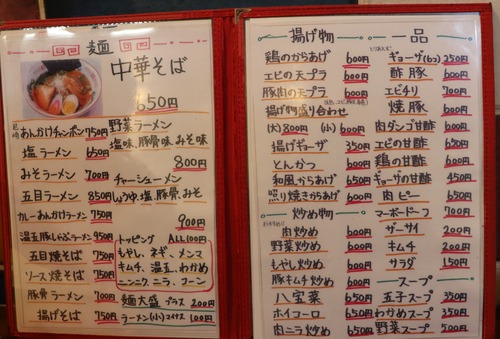 麺
中華そば
650円
あんかけチャンポン 750円
塩ラーメン 650円
みそラーメン 700円
五目ラーメン 850円
カレーあんかけラーメン 750円
温玉豚しゃぶラーメン 950円
五目焼そば 750円
ソース焼そば 750円
豚骨ラーメン 700円
揚げそば 750円
野菜ラーメン
塩味、豚骨味、みそ味
800円
チャーシューメン
しょうゆ、塩、豚骨、みそ
900円
トッピング ALL100円
もやし、ネギ、メンマ
キムチ、温玉、わかめ
ニンニク、ニラ、コーン
麺大盛 プラス 200円
ラーメン(小)マイナス 100円
揚げ物
鶏のからあげ 600円
エビの天プラ 600円
豚肉の天プラ 600円
揚げ物盛り合わせ
(大)800円 (小)600円
揚げギョーザ 350円
とんかつ 600円
和風からあげ 650円
照り焼きからあげ 600円
炒め物
肉炒め 600円
野菜炒め 600円
もやし炒め 600円
豚キムチ炒め 600円
八宝菜 650円
ホイコーロ 650円
肉ニラ炒め 650円
一品
ギョーザ(6コ) 250円
酢豚 650円
エビチリ 700円
焼豚 600円
肉ダンゴ甘酢 600円
エビの甘酢 650円
鶏の甘酢 600円
ギョーザの甘酢 450円
肉ピー 650円
マーボードーフ 700円
ザーサイ 200円
キムチ 200円
サラダ 150円
スープ
玉子スープ 350円
わかめスープ 350円
野菜スープ 500円